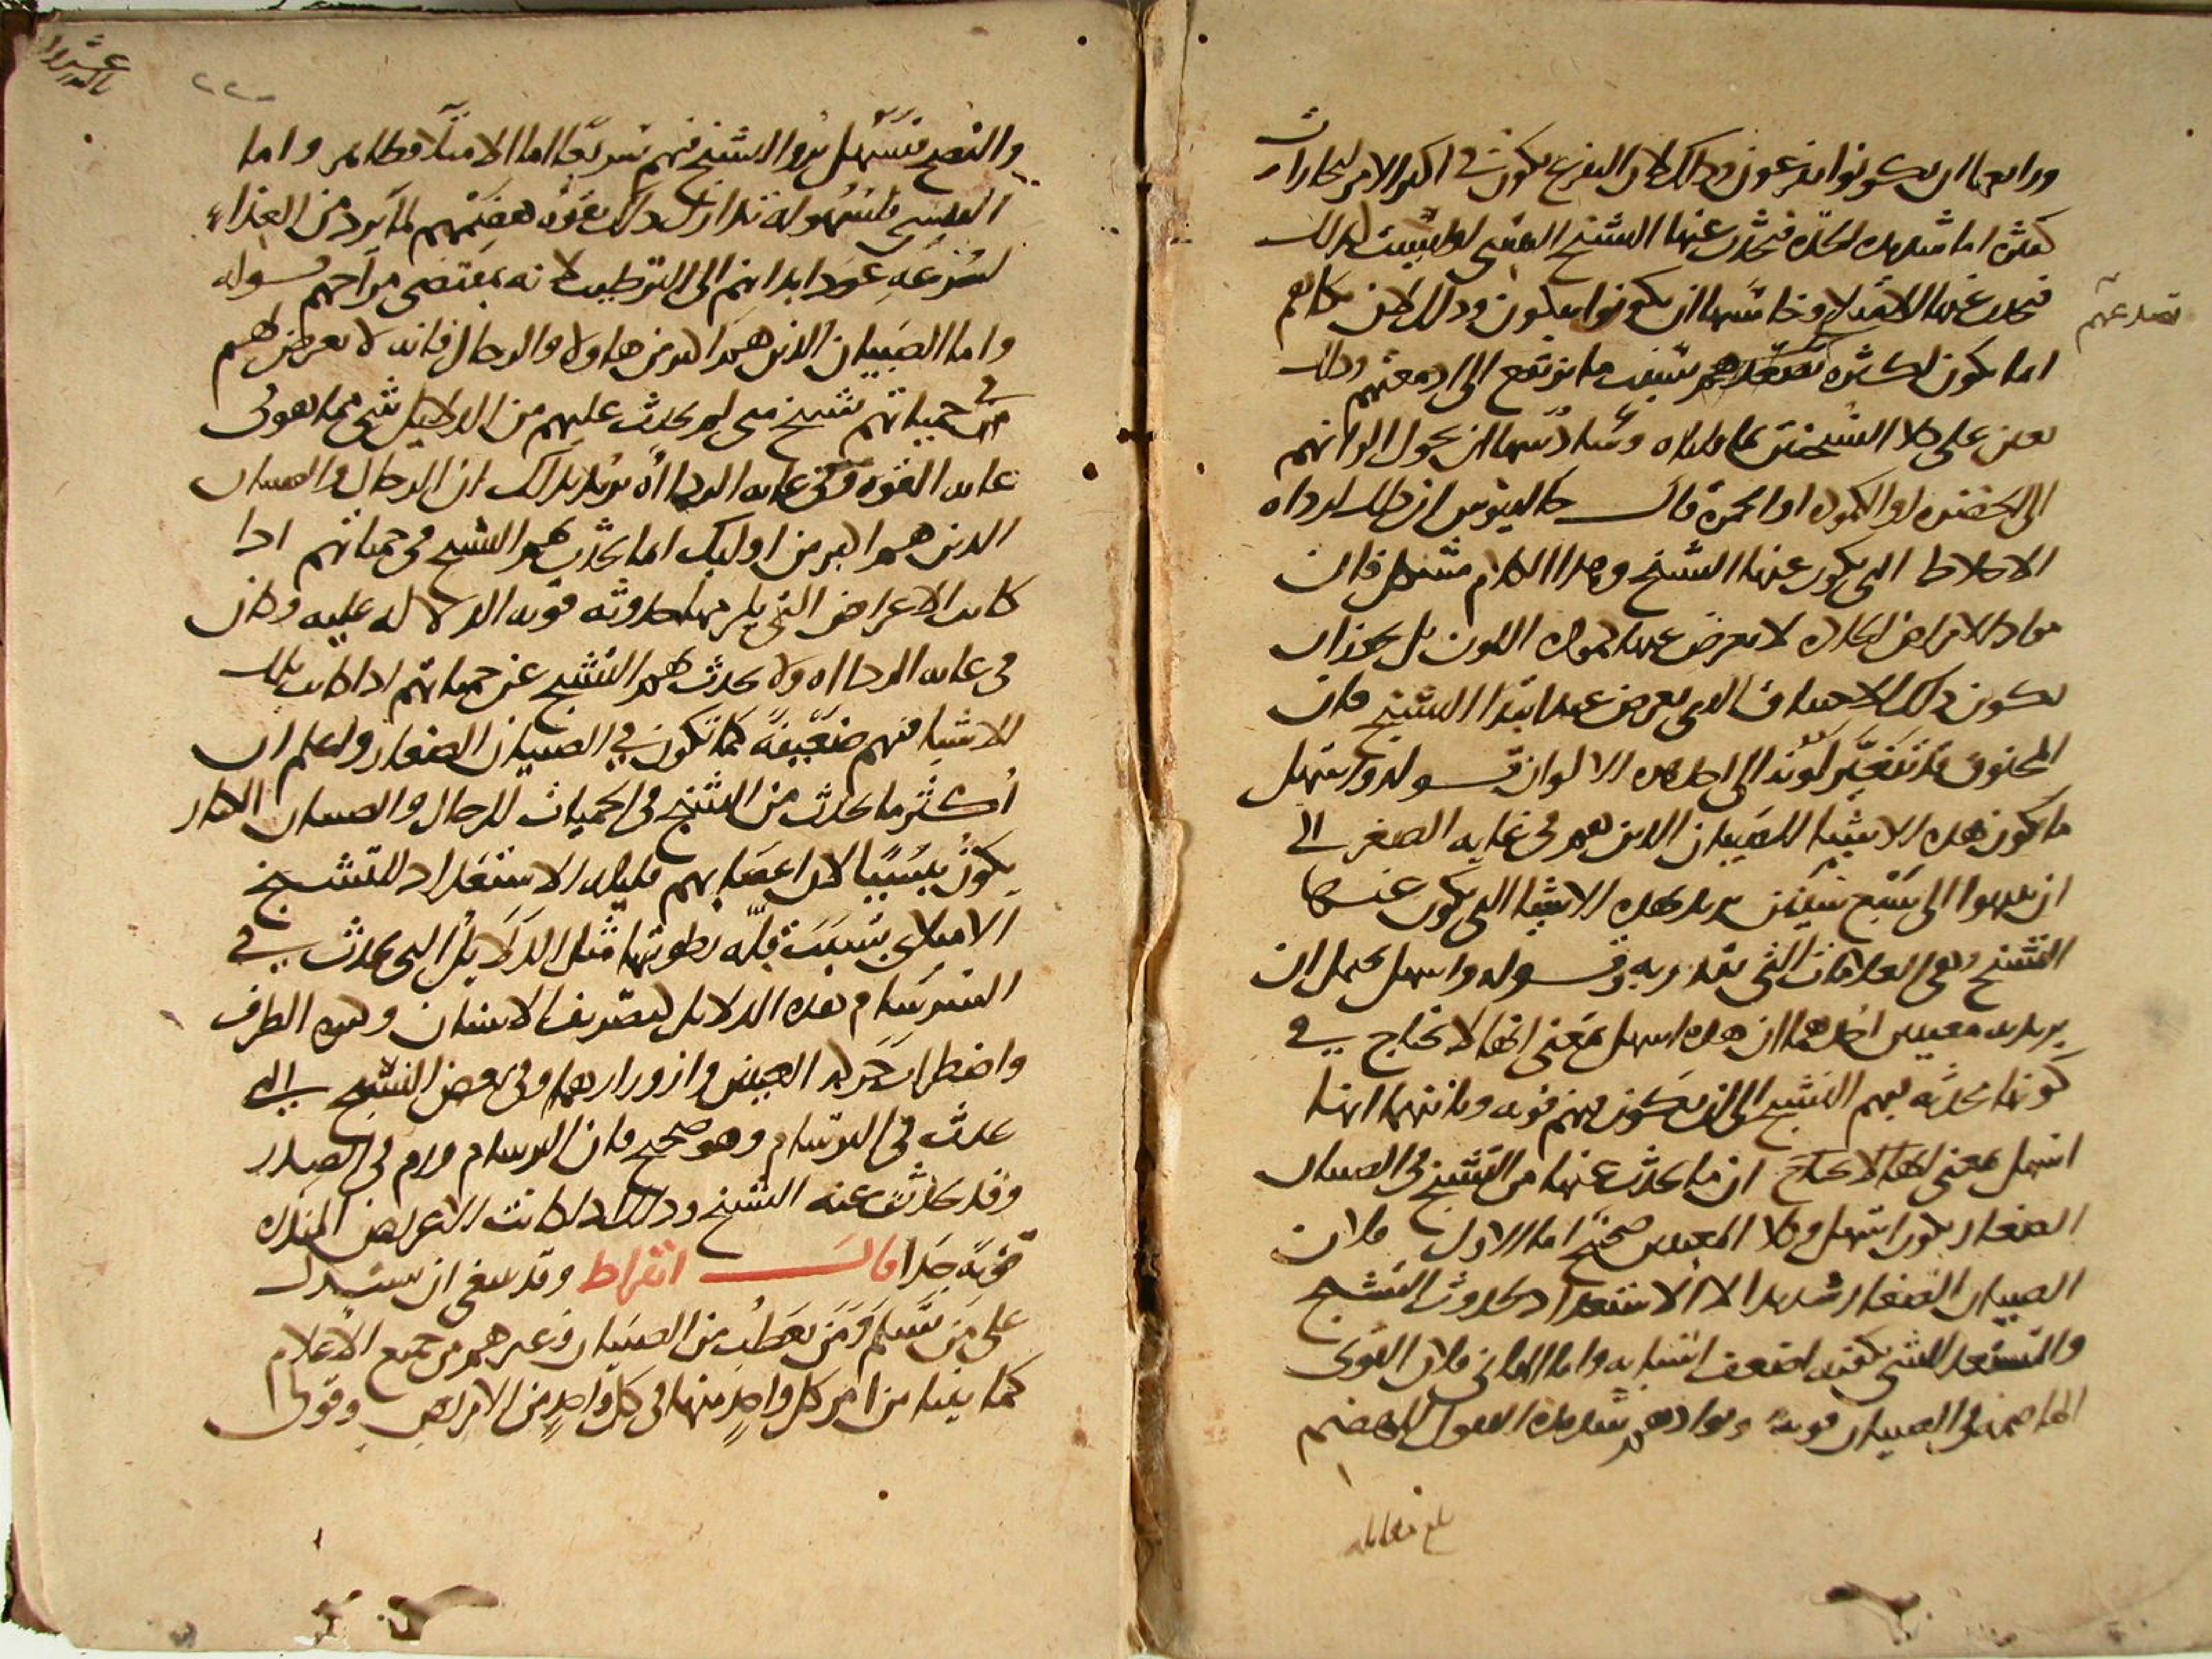 ورابعها ان يكونوا يفزعون وذلك لان الفزع يكون في اكثر الامر لبخارات
كثيرة اما شديدة الحدة فيحدث عنها التشنج اليبسي او
فيحدث عنها الامتلاى وخامسها ان يكونوا يبكون وذلك لان بكاهم
اما يكون لكثرة تصدعهم بسبب ما يرتفع الى ادمغتهم وذلك
تصدعهم
يعين على كلا التشنجين كما قلناه وسادسها ان تحول الوانهم
الى الخضرة او الكمودة او الحمرة قال جالينوس ان تلك ارداه
الاخلاط التي يكون عنها التشنج وهذا الكلام مشكل فان
مواد الامراض الحادة لا يعرض عنها كمودة اللون بل يجوز ان
يكون ذلك للاختناق الذي يعرض عند ابتدا التشنج فان
المخنوق قد يتغير لونه الى احد هذه الالوان قوله واسهل
ما يكون هذه الاشيا للصبيان الذين هم في غاية الصغر الى
ان ينتهوا الى سبع سنين يريد بهذه الاشيا التي يكون عنها
التشنج وهي العلامات التي تقدر به وقوله واسهل يحتمل ان
يريد به معنيين احدهما ان هذه اسهل بمعنى انها لا تحتاج في
كونها محدثة فيهم التشنج الى ان يكون فيهم قوية وثانيهما انها
اسهل بمعنى انها لا تحتاج ان ما يحدث عنها من التشنج في الصبيان
الصغار يكون اسهل وكلا المعنيين صحيح اما الاول فلان
الصبيان الصغار شديدوا الاستعداد لحدوث التشنج
والمستعد للشي يكفيه اضعف اسبابه واما الثاني فلان القوى
الهاضمة في الصبيان قوية وموادهم شديدة القبول للهضم
بلغ مقابلة
والنضج فيسهل برو التشنج فيهم سريعا اما الامتلاى فظاهر واما
اليبسي فلسهولة تدارك ذلك بقوة هضمهم لما يرد من الغذاء
لسرعة عود ابدانهم الى الترطيب لانه بمقتضى مزاجهم قوله
واما الصبيان الذين هم اكبر من هاولا والرجال فانه لا يعرض لهم
في حمياتهم تشنج متى لم يحدث عليهم من الدلايل شي مما هو في
غاية القوة وفي غاية الرداه يريد بذلك ان الرجال والصبيان
الذين هم اكبر من اوليك انما يحدث لهم التشنج في حمياتهم اذا
كانت الاعراض التي يلزمها حدوثه قوية الدلالة عليه وكان
في غاية الرداه ولا يحدث لهم التشنج عن حمياتهم اذا كانت تلك
الاشيا فيهم ضعيفة كما تكون في الصبيان الصغار واعلم ان
اكثر ما يحدث من التشنج في الحميات للرجال والصبيان الكبار
يكون يبسيا لان اعصابهم قليلة الاستعداد للتشنج
الامتلاى بسبب قلة رطوبتها مثل الدلايل التي تحدث في
السرسام هذه الدلايل كصريف الاسنان وكثرة الطرف
واضطراب حركة العينين وازورارهما وفي بعض النسخ التي
تحدث في البرسام وهو صحيح فان البرسام ورم في الصدر
وقد يحدث عنه التشنج وذلك اذا كانت الاعراض المنذرة
قوية جدا قال ابقراط وقد ينبغي ان يستدل
على من يسلم ومن يعطب من الصبيان وغيرهم من جميع الاعلام
كما بينا من امر كل واحد منها في كل واحد من الامراض وقولى